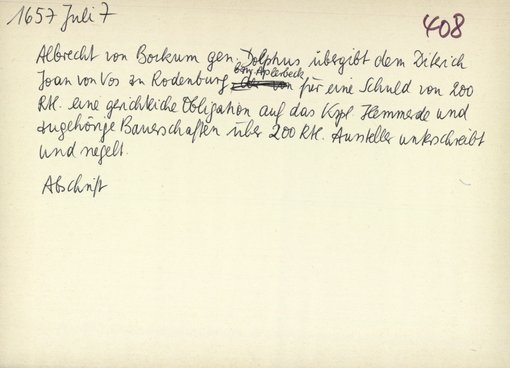 1657 Juli 7
408
Albrecht von Bockum gen. Dolphus übergibt dem Diterich
Joan von Vos zu Rodenburg bey Aplerbeck für eine Schuld von 200
Rtl. eine gerichtliche Obligation auf das Kspl. Hemmerde und
zugehörige Bauerschaften über 200 Rtl. Aussteller unterschreibt
und siegelt.
Abschrift